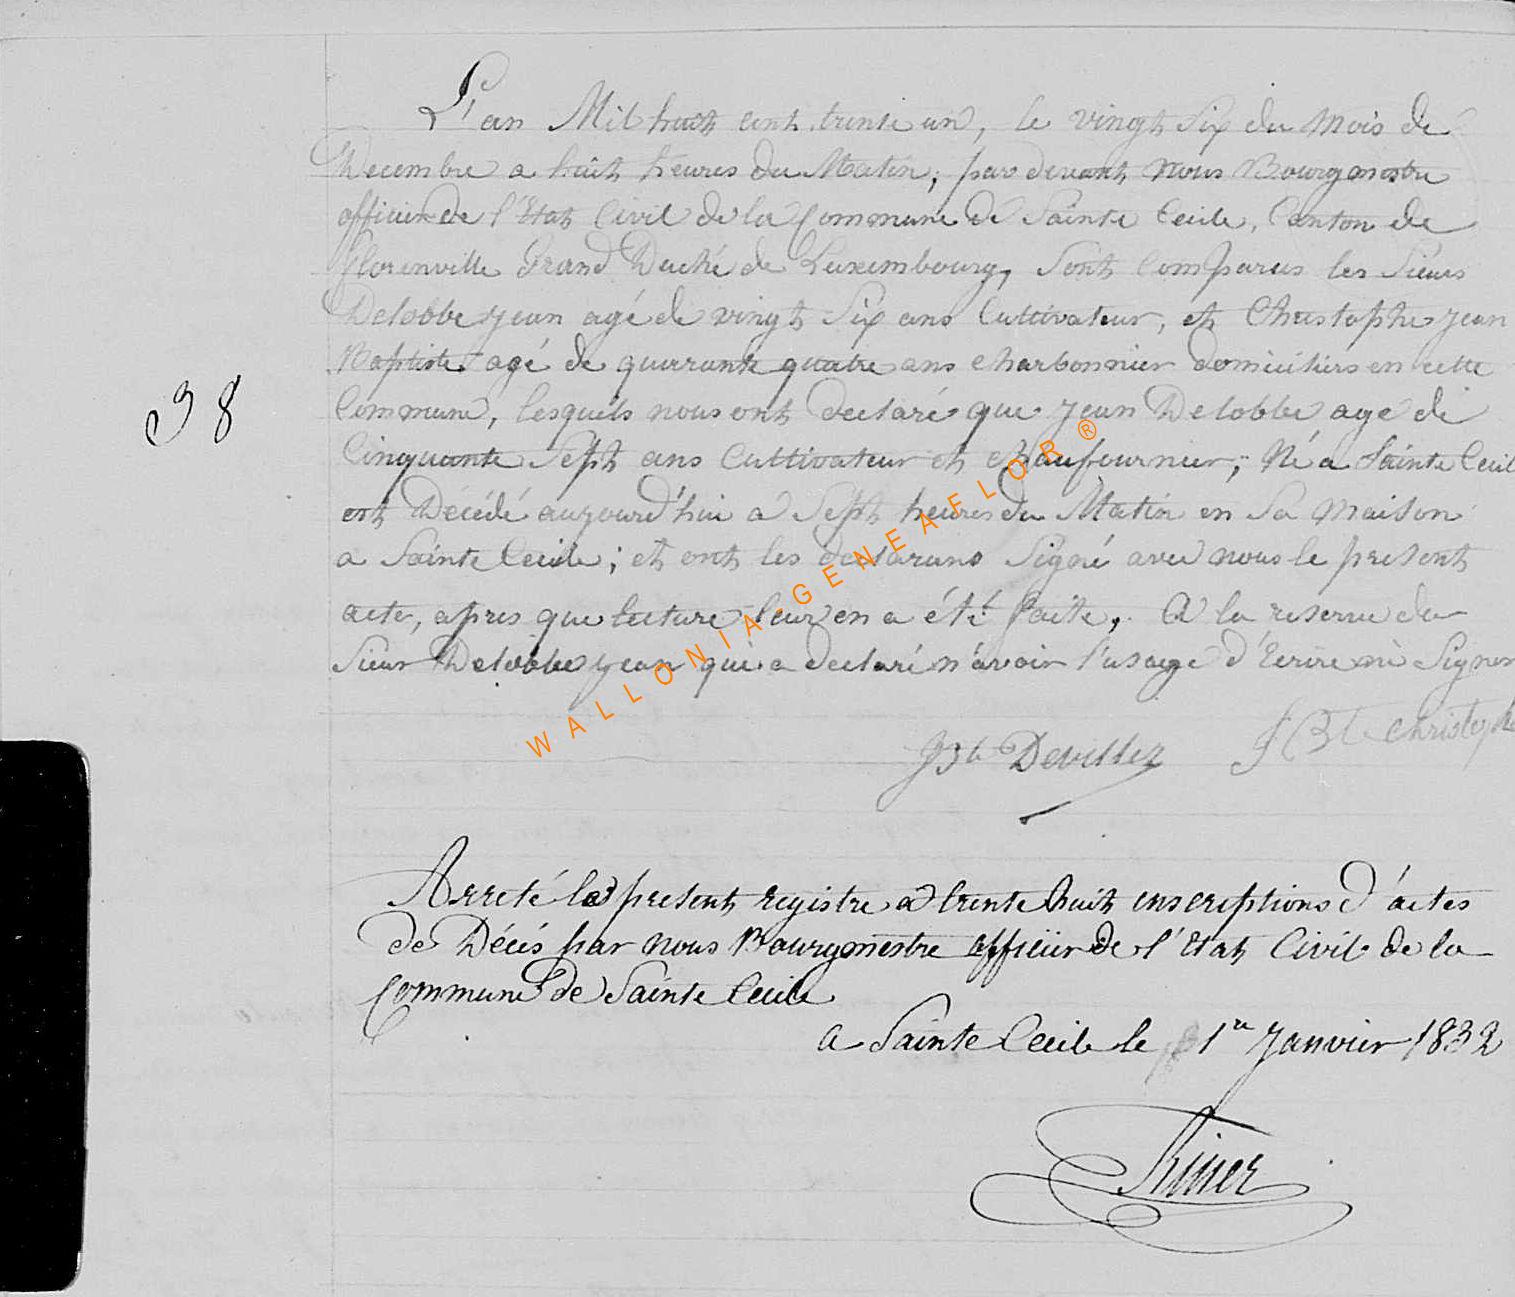 L'an Mil huit cent trente un, le vingt Six du Mois de
Decembre a huit heures du Matin, par devant nous Bourgmestre
officier de l'Etat Civil de la Commune de Sainte Cecile, Canton de
florenville Grand Duché de Luxembourg, sont Comparus les Sieurs
Delobbe jean agé de vingt Six ans Cultivateur, et Christophe jean
Baptiste agé de quarrante quatre ans charbonnier domiciliers en cette
Commune, lesquels nous ont declaré que jean Delobbe age de
38
Cinquante Sept ans Cultivateur et chaufournier, Né a Sainte Cecil
est Décédé aujourd'hui a Sept heures du Matin en Sa Maison
a Sainte Cecile; et ont les declarans Signé avec nous le present
acte, apres que lecture leur en a été faite, A la reserve du
Sieur Delobbe jean qui a declaré n'avoir l'usage d'Ecrire ni Signer
WALLONIA-GENEAFLOR®
JBte Devillez JBte Christophe
Arreté le present registre a trente huit inscriptions d'actes
de Décés par nous Bourgmestre officier de l'Etat Civil de la
Commune de Sainte Cecile
a Sainte Cecile le 1er Janvier 1832